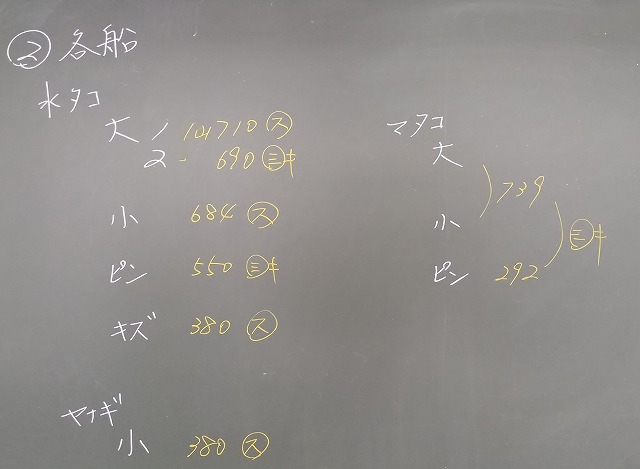 ② 各船
水タコ
大 1 710 ㋜
2 - 690 ㊂キ
小 684 ㋜
ピン 550 ㊂キ
キズ 380 ㋜
ヤナギ
小 380 ㋜
マタコ
大
739
小
㊂キ
ピン 292